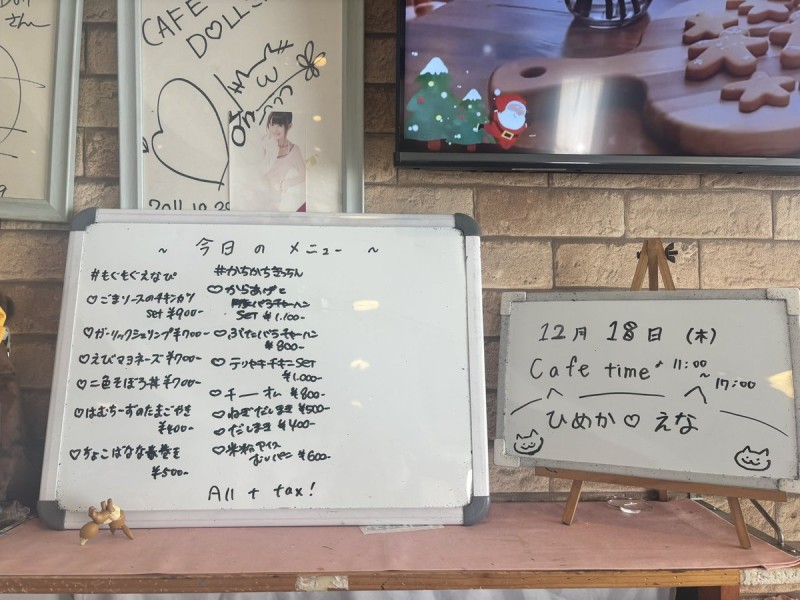 さん
CAFE
DOLL
2011.10.30
~ 今日の メニュー ~
#もぐもぐえなぴ
♡ごまソースのチキンカツ
set ¥900-
♡ガーリックシュリンプ¥700-
♡えびマヨネーズ¥700-
♡二色そぼろ丼¥700-
♡はむちーずのたまごやき
¥400-
♡ちょこばなな春巻き
¥500-
#かちかちきっちん
♡からあげと
豚ばらチャーハン
SET ¥1,100-
♡ぶたばらチャーハン
¥800-
♡テッセキチキンSET
¥1,000-
♡チーオム ¥800-
♡ねぎだしまき ¥500-
♡だしまき ¥400-
¥600-
All + tax!
12月 18日 (木)
Cafe time 11:00
~17:00
ひめか♡えな